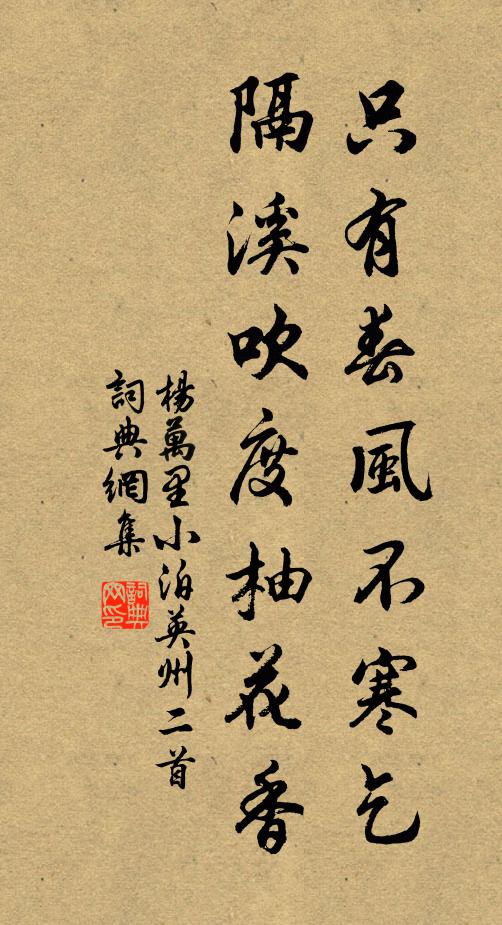 只有春風不寒乞
隔溪吹度柚花香
楊萬里小泊英州二首
詞典網集
詞典
网印